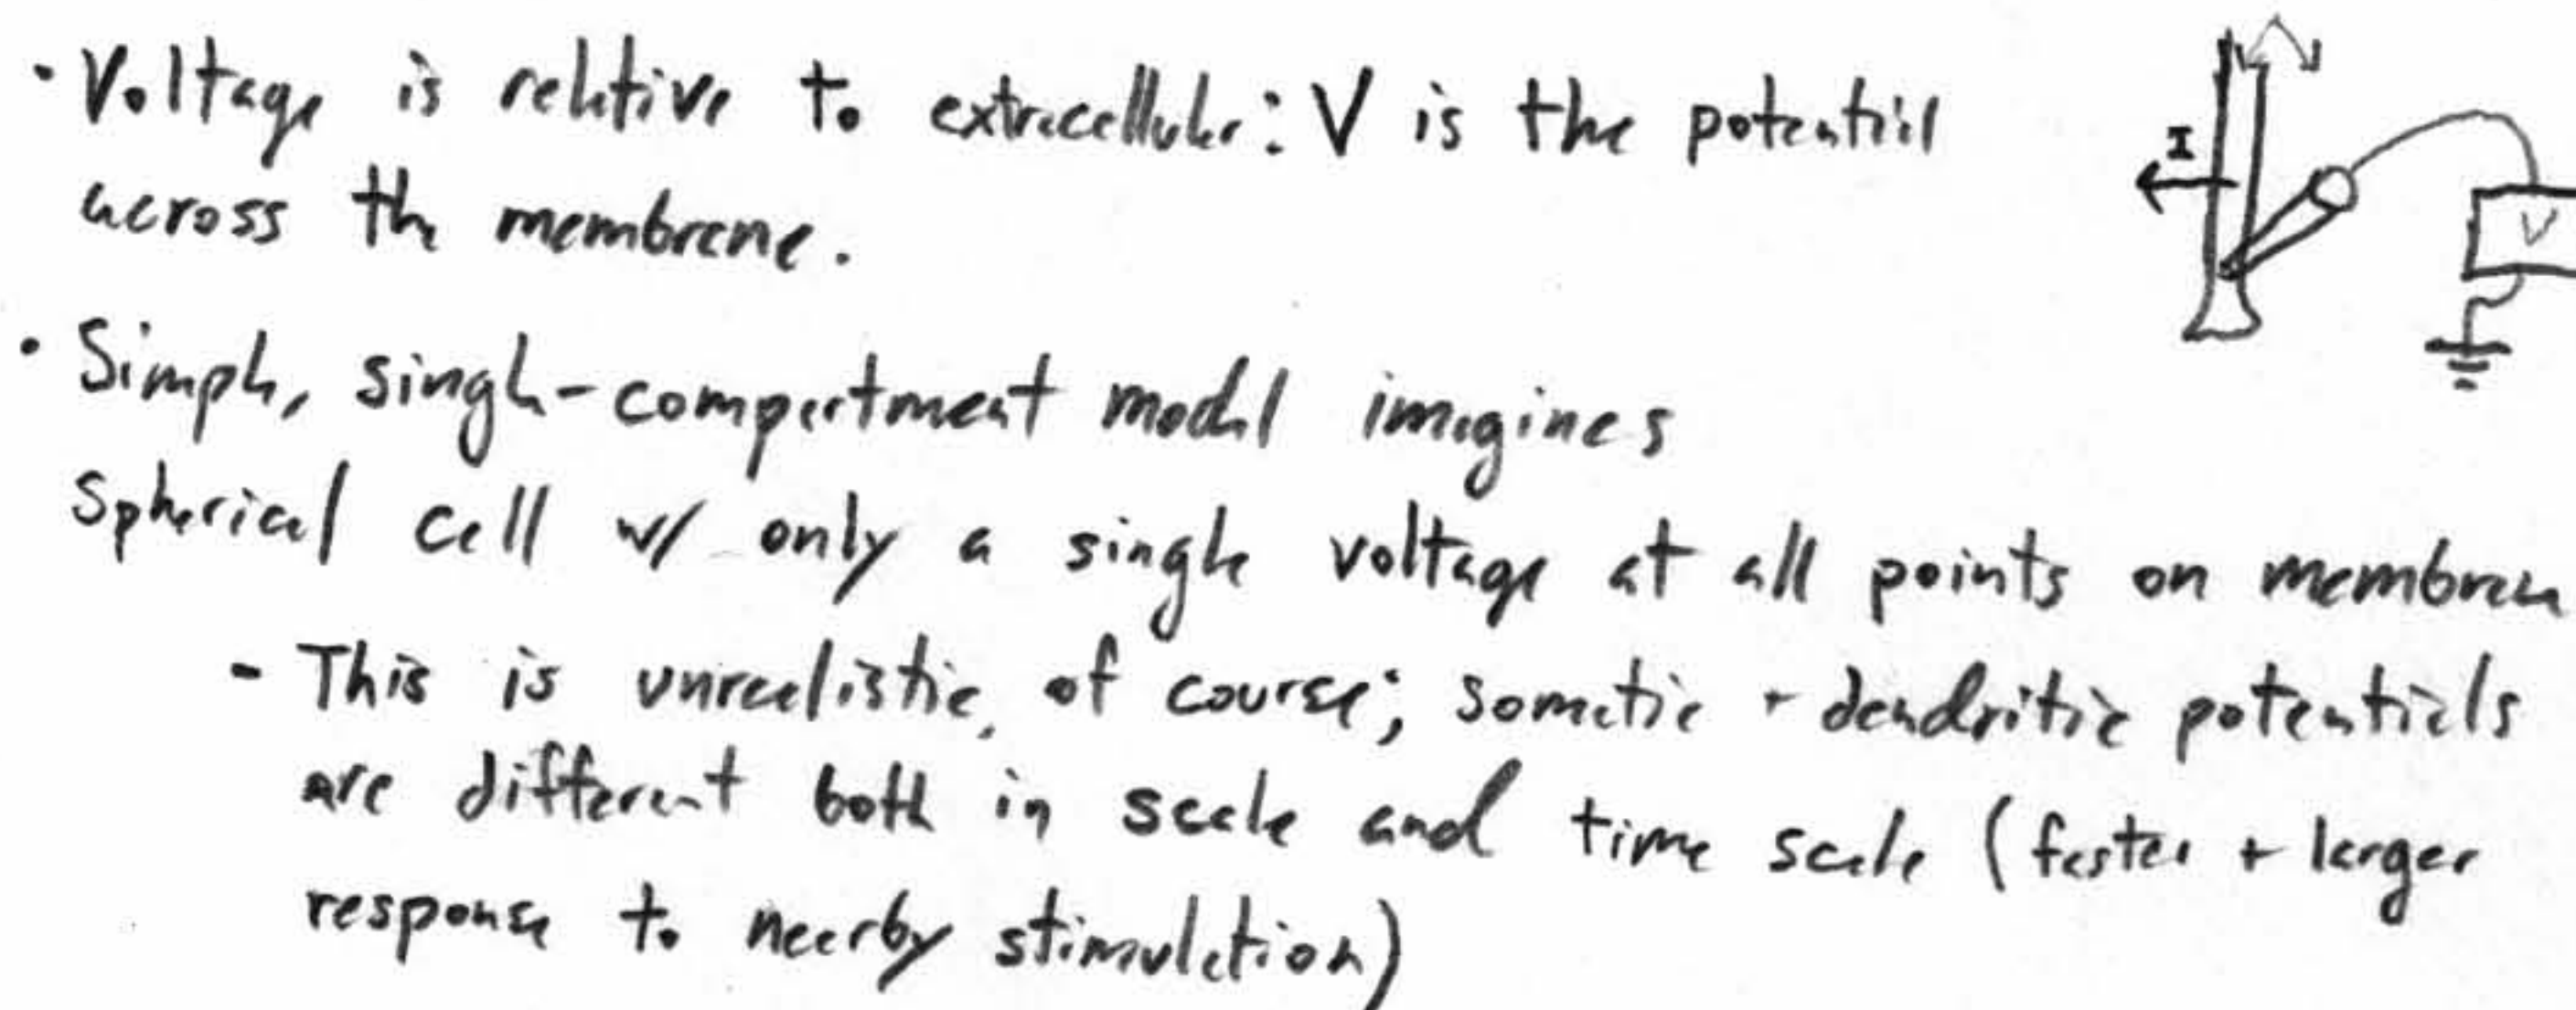 · Voltage is relative to extracellular: V is the potential
across the membrane.
I
V
· Simple, single-compartment model imagines
spherical cell w/ only a single voltage at all points on membrane
- This is unrealistic, of course; somatic + dendritic potentials
are different both in scale and time scale (faster + larger
response to nearby stimulation)